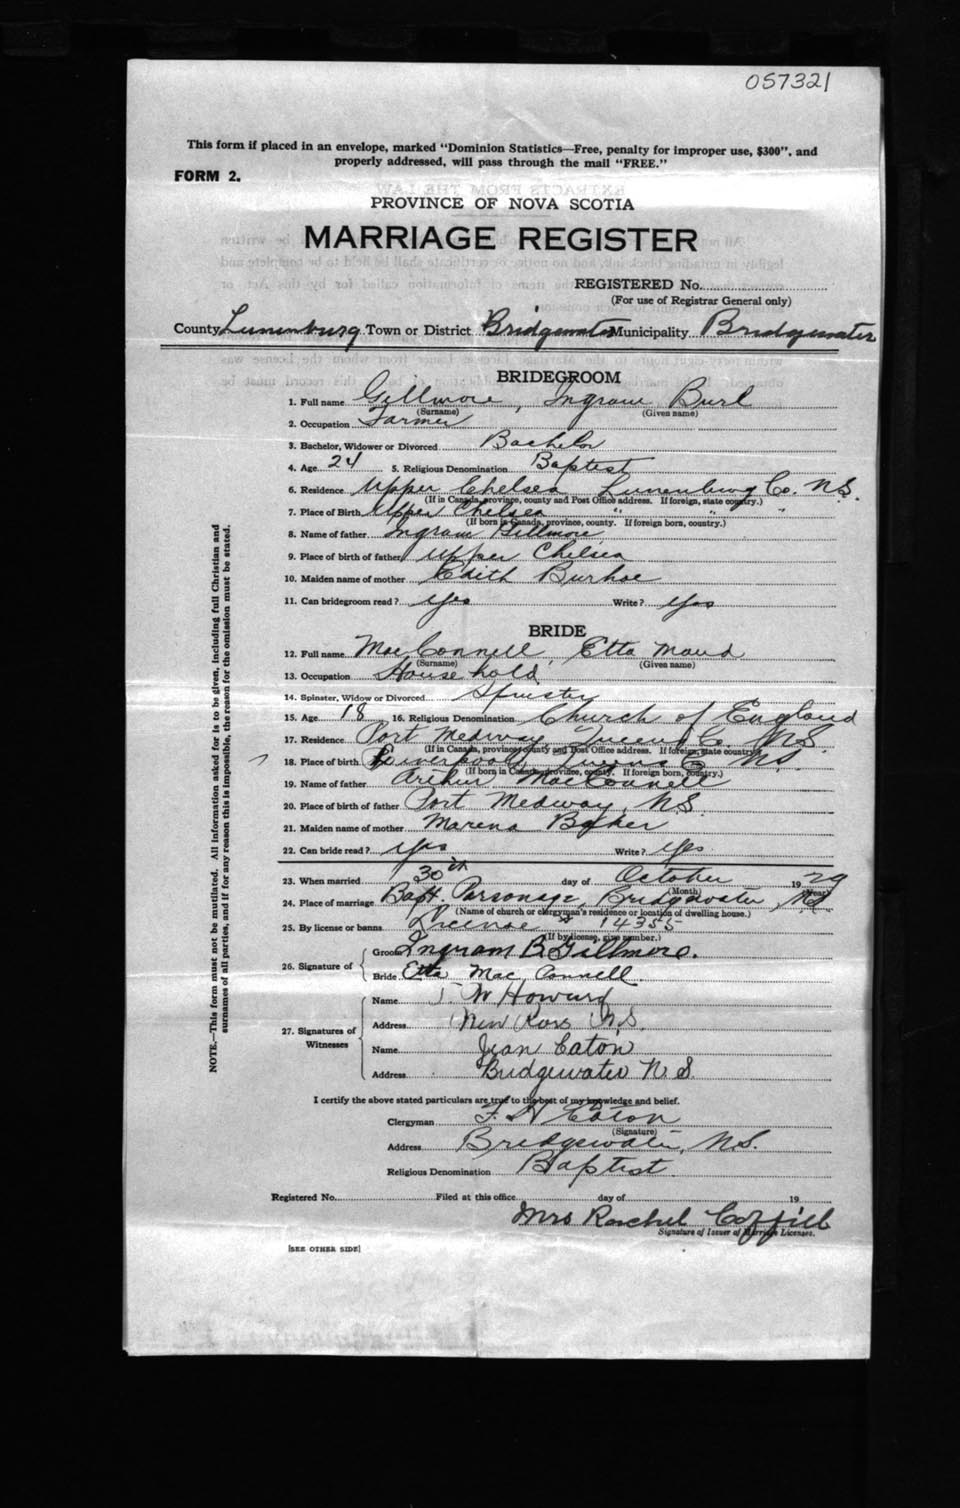 057321
This form if placed in an envelope, marked "Dominion Statistics—Free, penalty for improper use, $300", and
properly addressed, will pass through the mail "FREE."
FORM 2.
PROVINCE OF NOVA SCOTIA
MARRIAGE REGISTER
REGISTERED No.
(For use of Registrar General only)
County Lunenburg Town or District Bridgewater Municipality Bridgewater
BRIDEGROOM
1. Full name Gillmore, Ingram Burl
(Surname) (Given name)
2. Occupation Farmer
3. Bachelor, Widower or Divorced Bachelor
4. Age 24 5. Religious Denomination Baptist
6. Residence Upper Chelsea Lunenburg Co. N.S.
(If in Canada, province, county and Post Office address. If foreign, state country.)
7. Place of Birth Upper Chelsea " " "
(If born in Canada, province, county. If foreign born, country.)
8. Name of father Ingram Gillmore
9. Place of birth of father Upper Chelsea
10. Maiden name of mother Edith Burhoe
11. Can bridegroom read? yes Write? yes
BRIDE
12. Full name MacConnell, Etta Maud
(Surname) (Given name)
13. Occupation Household
14. Spinster, Widow or Divorced Spinster
15. Age 18 16. Religious Denomination Church of England
17. Residence Port Medway, Queens Co. N.S.
(If in Canada, province, county and Post Office address. If foreign, state country.)
18. Place of birth Liverpool, Queens Co N.S.
(If born in Canada, province, county. If foreign born, country.)
19. Name of father Arthur MacConnell
20. Place of birth of father Port Medway, N.S.
21. Maiden name of mother Marena Baker
22. Can bride read? yes Write? yes
23. When married 30th day of October 1929
(Month) (Year)
24. Place of marriage Bapt. Parsonage, Bridgewater NS
(Name of church or clergyman's residence or location of dwelling house.)
25. By license or banns License # 14355
(If by license, give number.)
26. Signature of Groom Ingram B. Gillmore.
Bride Etta MacConnell
27. Signatures of Witnesses
Name W Howard
Address New Ross N.S.
Name Jean Eaton
Address Bridgewater N.S.
I certify the above stated particulars are true to the best of my knowledge and belief.
Clergyman F. H Eaton
(Signature)
Address Bridgewater, N.S.
Religious Denomination Baptist
Registered No. Filed at this office day of 19
Mrs Rachel Coffill
Signature of Issuer of Marriage Licenses.
[SEE OTHER SIDE]
NOTE.—This form must not be mutilated. All information asked for is to be given, including full Christian and
surnames of all parties, and if for any reason this is impossible, the reason for the omission must be stated.